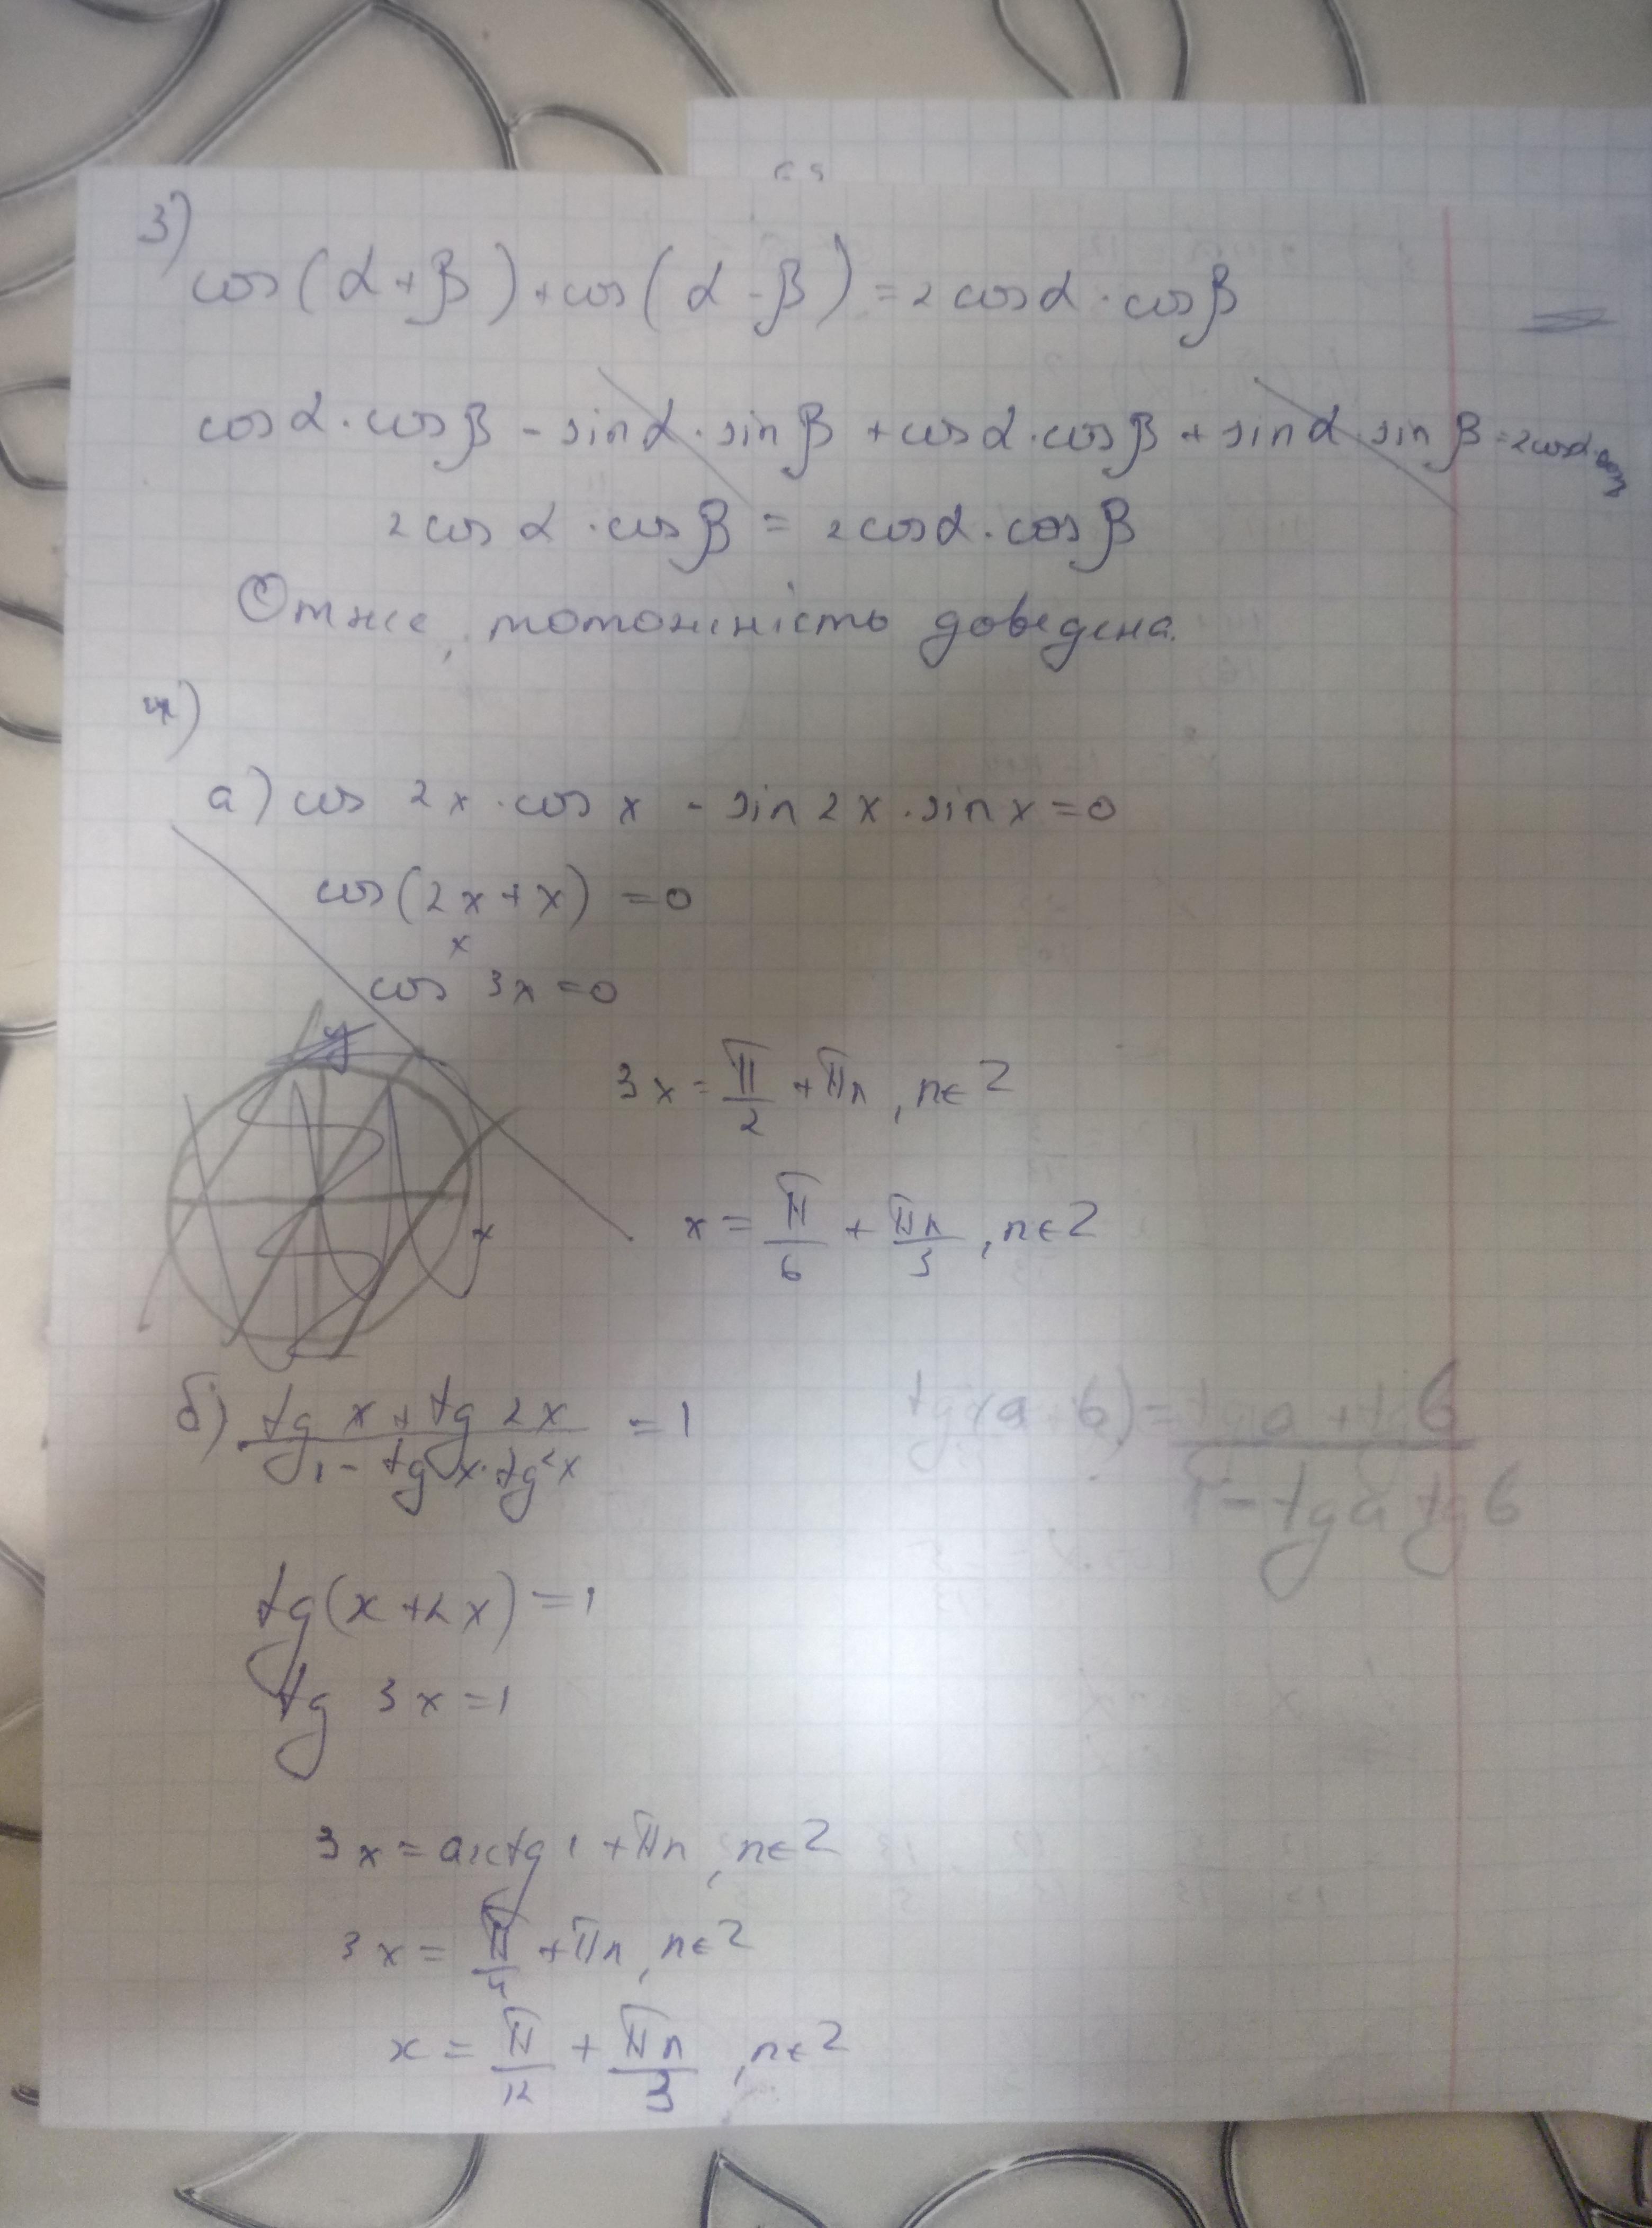 3)
cos(α+β)+cos(α-β)=2cosα·cosβ
cosα·cosβ - sinα·sinβ +cosα·cosβ + sinα·sinβ=2cosα·cosβ
2cosα·cosβ = 2cosα·cosβ
Отже, тотожність доведена.
4)
а) cos 2x·cos x - sin2x·sinx=0
cos(2x+x)=0
x
cos 3x=0
y
3x=π/2+πn, n∈Z
x
x=π/6+πn/3, n∈Z
б) (tg x+tg 2x)/(1-tg x·tg2x)=1
tg(a+b)=(tg a+tg b)/(1-tg a tg b)
tg(x+2x)=1
tg 3x=1
3x=arctg 1+πn, n∈Z
3x=π/4+πn, n∈Z
x=π/12+πn/3, n∈Z